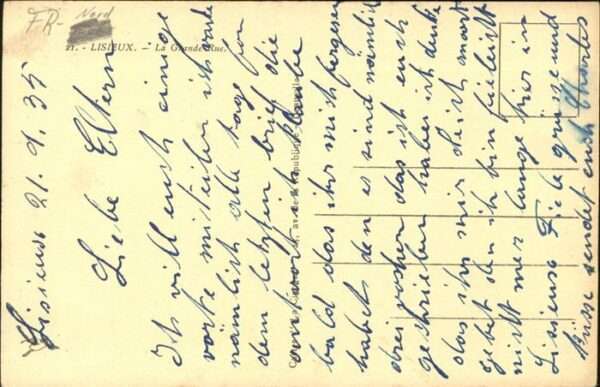 FR- Nord
21. - LISIEUX. - La Grande Rue.
Lisieux 21. 9. 35
Liebe Eltern
Ich will euch einige
worte mitteilen ich warte
nämlich alle tage
dem letzen brief die
antwort ich glaube
bald das ihr mich vergesen
habet den es sind nämlich
drei wochen das ich euch
geschrieben habe ich denke
das ihr mir doch antwort
gebet den ich bin vieleicht
nicht mer lange hier in
Lisieux Viele grüse und
Küsse sendet euch Charles